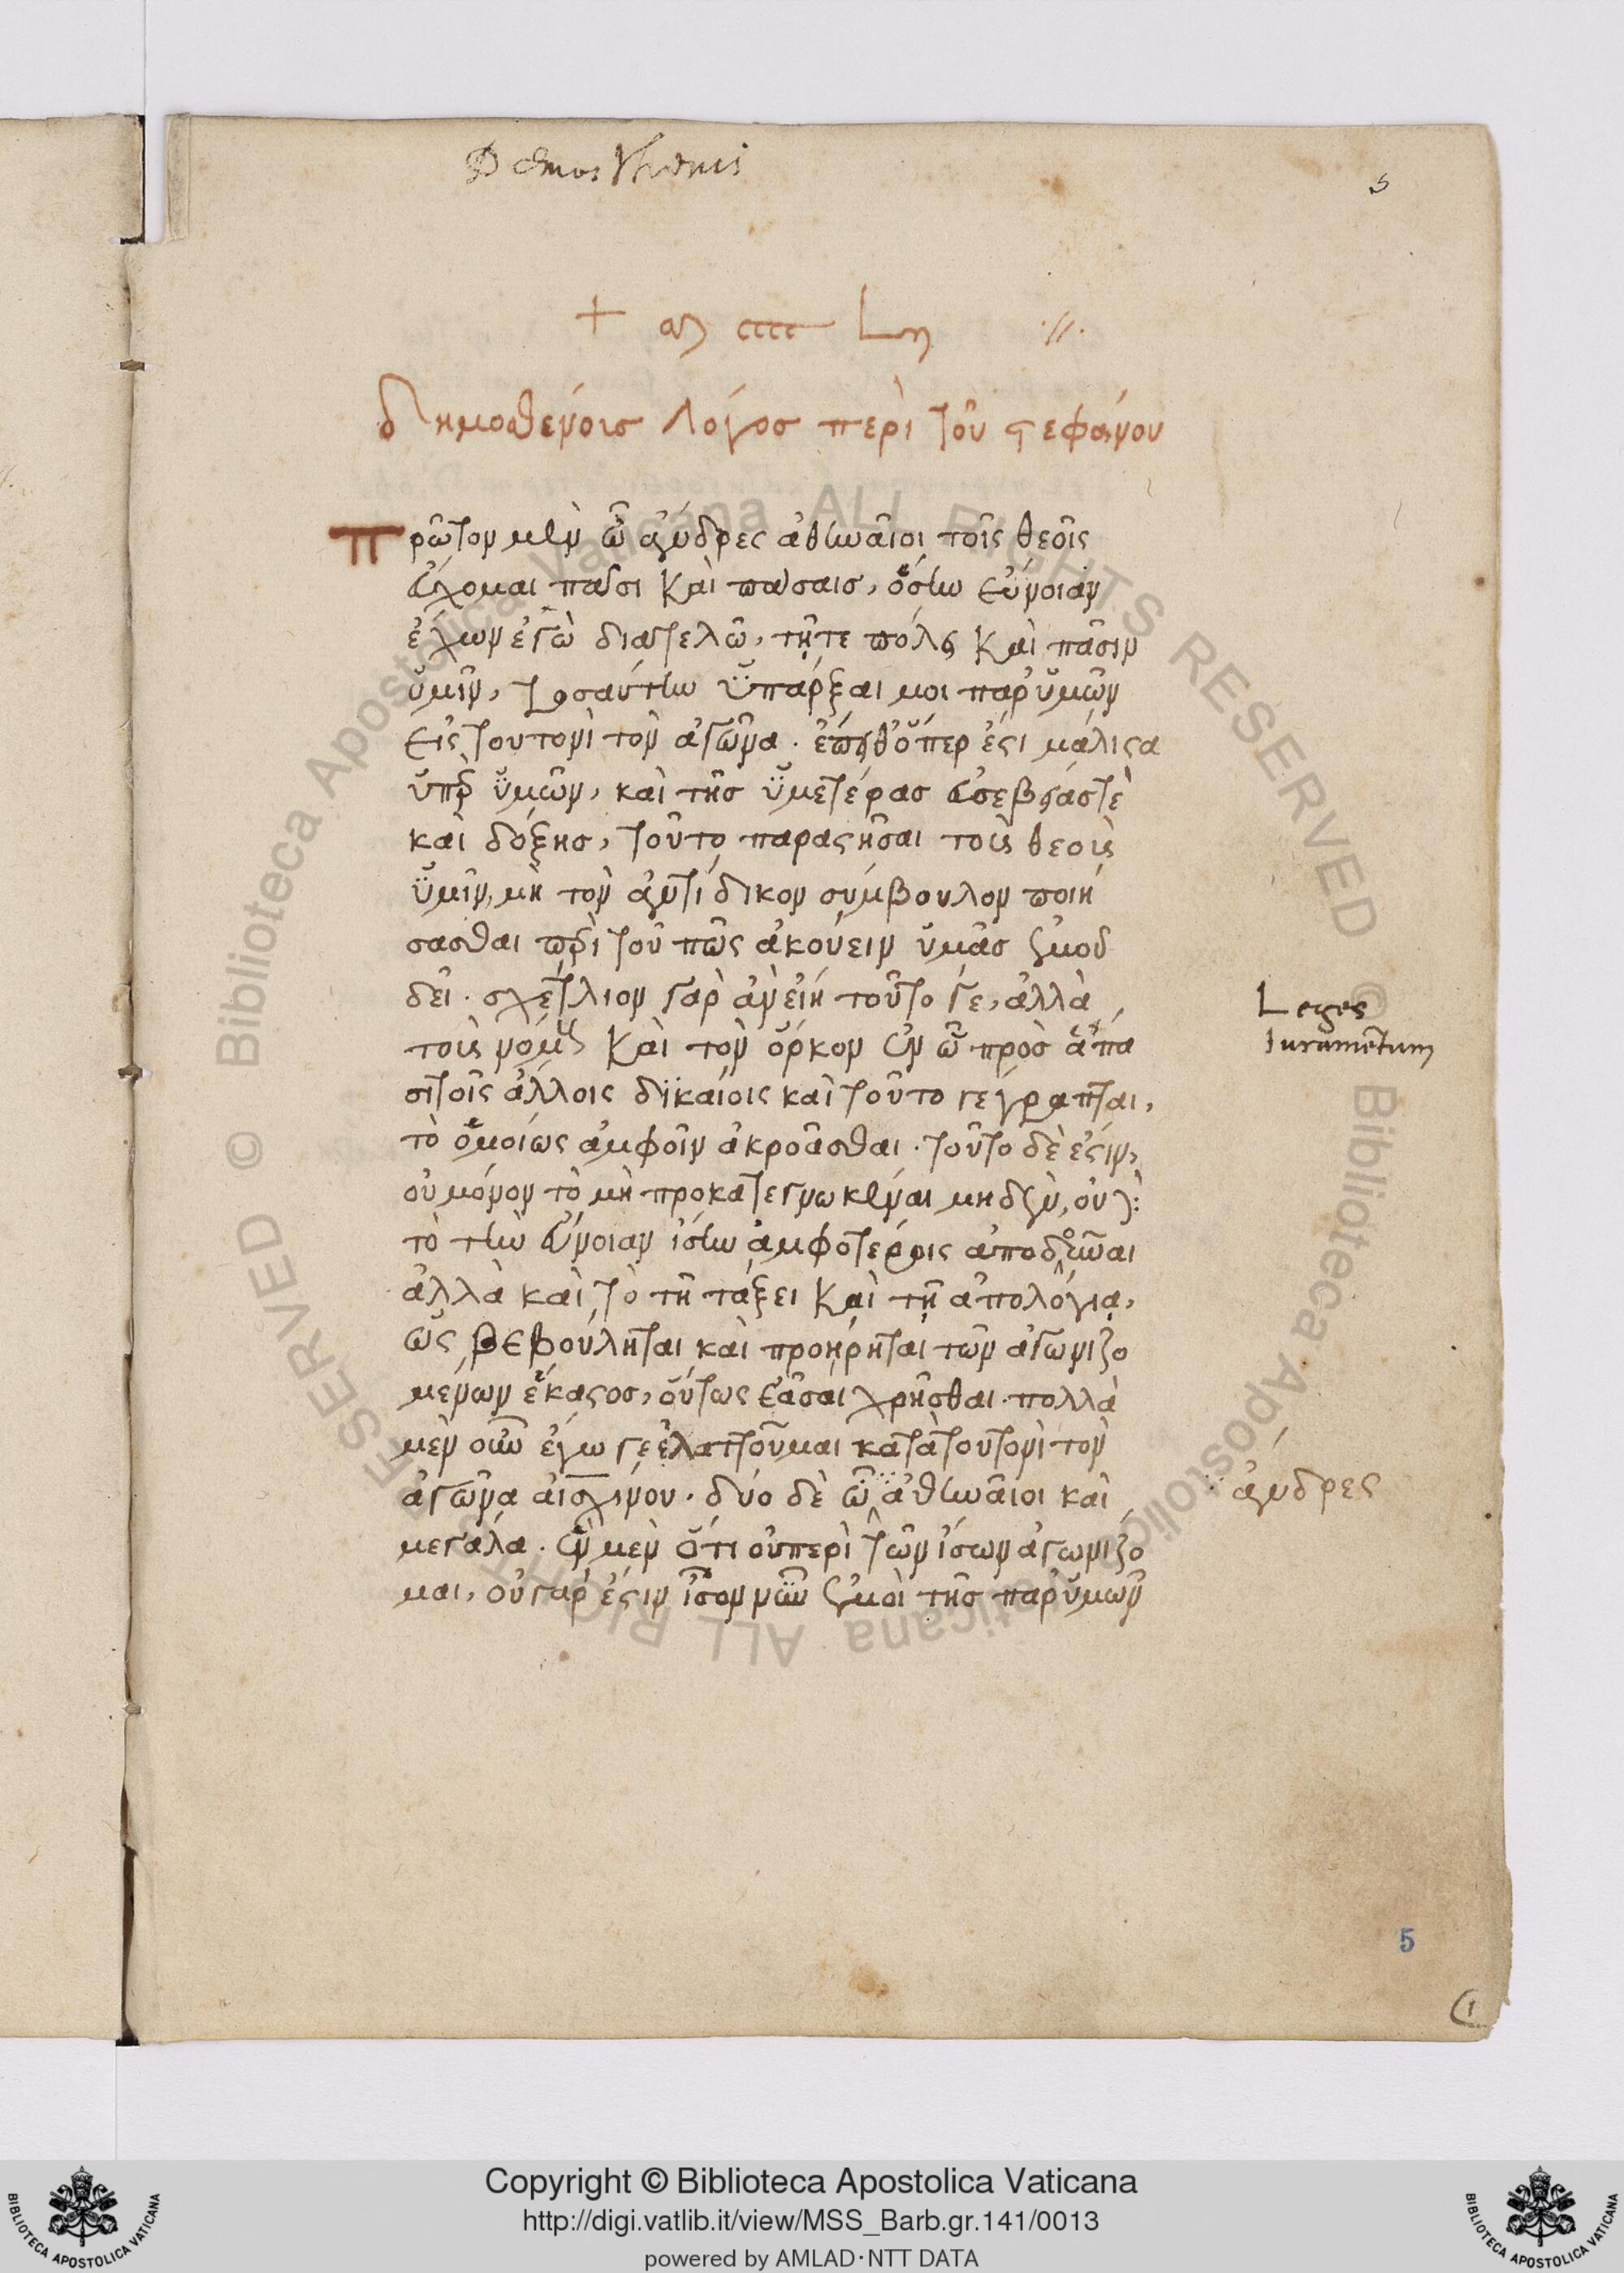 Demosthenis
5
δημοσθένους λόγος περὶ τοῦ στεφάνου
Πρῶτον μὲν ὦ ἄνδρες ἀθηναῖοι τοῖς θεοῖς
εὔχομαι πᾶσι καὶ πάσαις, ὅσην εὔνοιαν
ἔχων ἐγὼ διατελῶ, τῆτε πόλει καὶ πᾶσιν
ὑμῖν, τοσαύτην ὑπάρξαι μοι παρ' ὑμῶν
εἰς τουτονὶ τὸν ἀγῶνα. ἔπειθ' ὅπερ ἐστὶ μάλιστα
ὑπὲρ ὑμῶν, καὶ τῆς ὑμετέρας εὐσεβείας τὲ
καὶ δόξης, τοῦτο παραστῆσαι τοὺς θεοὺς
ὑμῖν, μὴ τὸν ἀντίδικον σύμβουλον ποιή
σασθαι περὶ τοῦ πῶς ἀκούειν ὑμᾶς ἐμοῦ
δεῖ. σχέτλιον γὰρ ἂν εἴη τοῦτο γε, ἀλλὰ
τοὺς νόμους καὶ τὸν ὅρκον ἐν ὧ πρὸς ἅπα
σι τοῖς ἄλλοις δικαίοις καὶ τοῦτο γέγραπται,
τὸ ὁμοίως ἀμφοῖν ἀκροᾶσθαι. τοῦτο δὲ ἐστὶν,
οὐ μόνον τὸ μὴ προκατεγνωκέναι μηδὲν, οὐδὲ
τὸ τὴν εὔνοιαν ἴσην ἀμφοτέροις ἀποδοῦναι
ἀλλὰ καὶ τὸ τῆ τάξει καὶ τῆ ἀπολογία,
ὡς βεβούληται καὶ προήρηται τῶν ἀγωνιζο
μένων ἕκαστος, οὕτως ἐᾶσαι χρῆσθαι. πολλὰ
μὲν οὖν ἔγωγε ἐλαττοῦμαι κατὰ τουτονὶ τὸν
ἀγῶνα αἰσχίνου. δύο δὲ ὦ ἀθηναῖοι καὶ
μεγάλα. ἓν μὲν ὅτι οὐ περὶ τῶν ἴσων ἀγωνίζο
μαι, οὐ γάρ ἐστιν ἴσον νῦν ἐμοὶ τῆς παρ' ὑμῶν
Leges
Iuramentum
ἄνδρες
5
1
© Biblioteca Apostolica Vaticana ALL RIGHTS RESERVED © Biblioteca Apostolica Vaticana ALL RIGHTS RESERVED
BIBLIOTECA APOSTOLICA VATICANA
Copyright © Biblioteca Apostolica Vaticana
http://digi.vatlib.it/view/MSS_Barb.gr.141/0013
powered by AMLAD·NTT DATA
BIBLIOTECA APOSTOLICA VATICANA